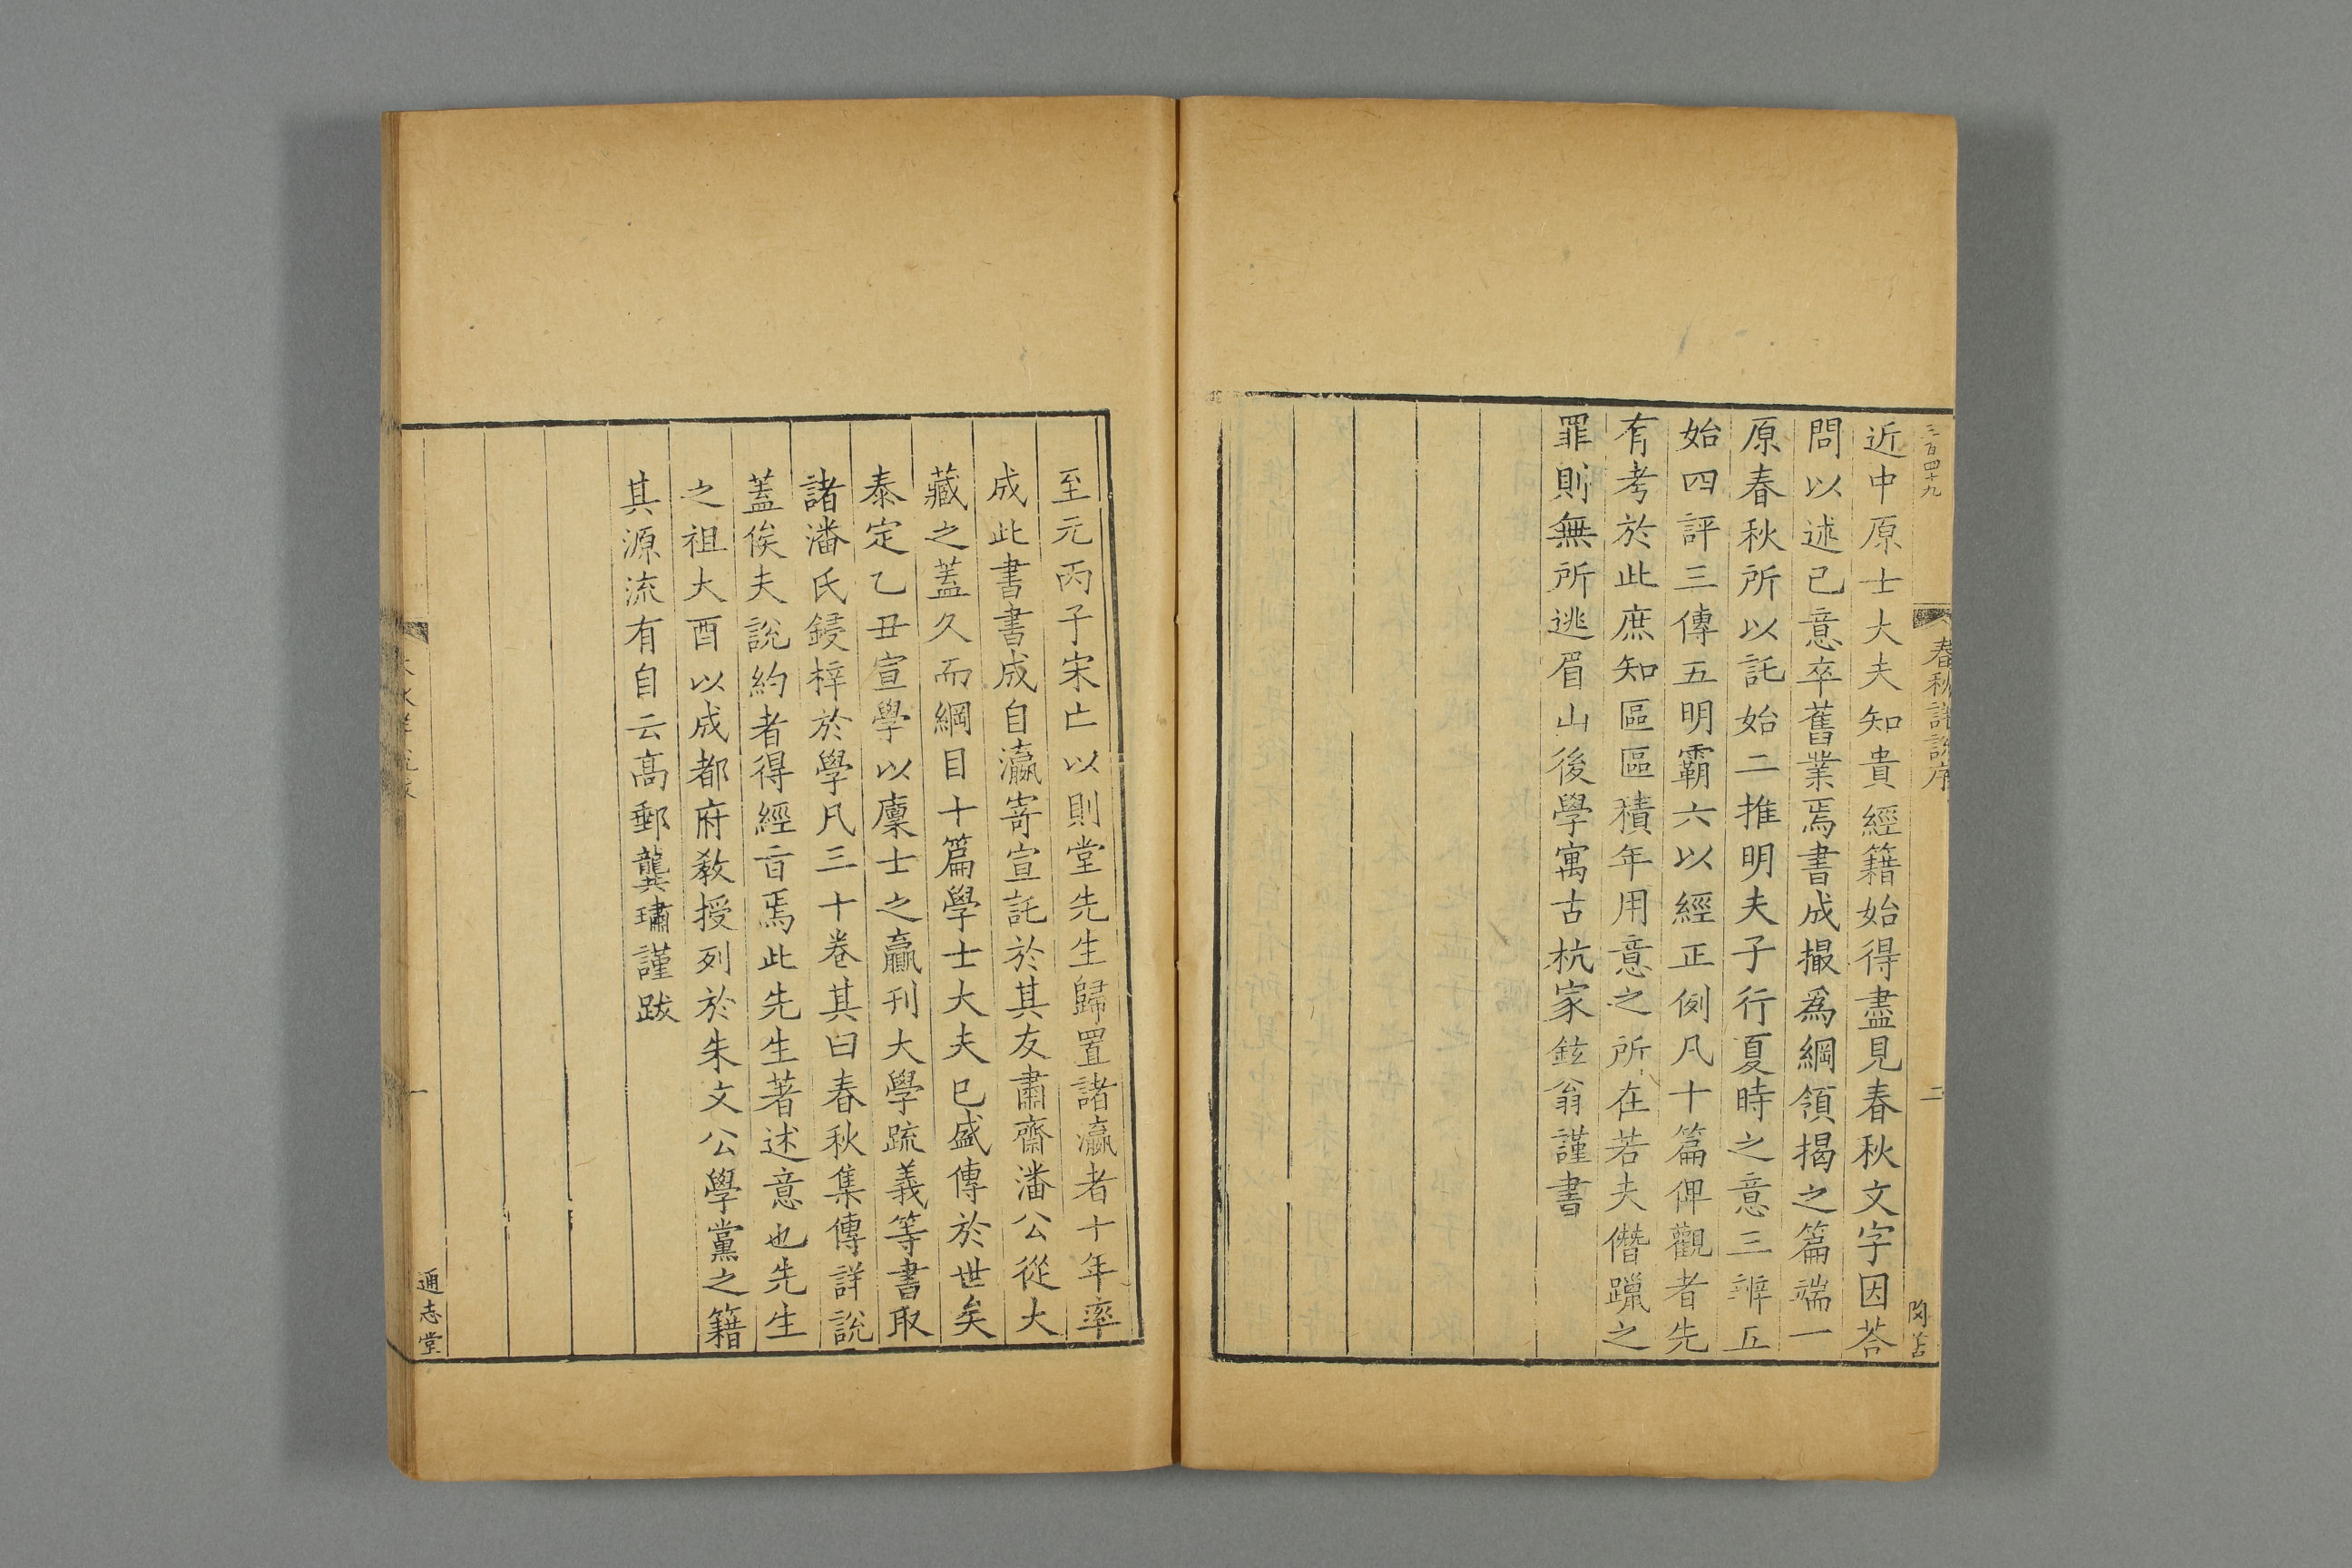 三百四十九
春秋詳說序
二
近中原士大夫知貴經籍始得盡見春秋文字因荅
問以述己意卒舊業焉書成撮爲綱領揭之篇端一
原春秋所以託始二推明夫子行夏時之意三辨五
始四評三傳五明霸六以經正例凡十篇俾觀者先
有考於此庶知區區積年用意之所在若夫僭躐之
罪則無所逃眉山後學寓古杭家鉉翁謹書
至元丙子宋亡以則堂先生歸置諸瀛者十年率
成此書書成自瀛寄宣託於其友肅齋潘公從大
藏之蓋久而綱目十篇學士大夫已盛傳於世矣
泰定乙丑宣學以廩士之贏刊大學疏義等書取
諸潘氏鋟梓於學凡三十卷其曰春秋集傳詳說
蓋俟夫說約者得經㫖焉此先生著述意也先生
之祖大酉以成都府敎授列於朱文公學黨之籍
其源流有自云高郵龔璛謹跋
一
通志堂